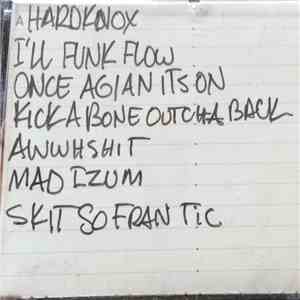 A HARDKNOX
I'LL FUNK FLOW
ONCE AGIAN ITS ON
KICK A BONE OUTCHA BACK
AWWHSHIT
MAD IZUM
SKIT SO FRANTIC